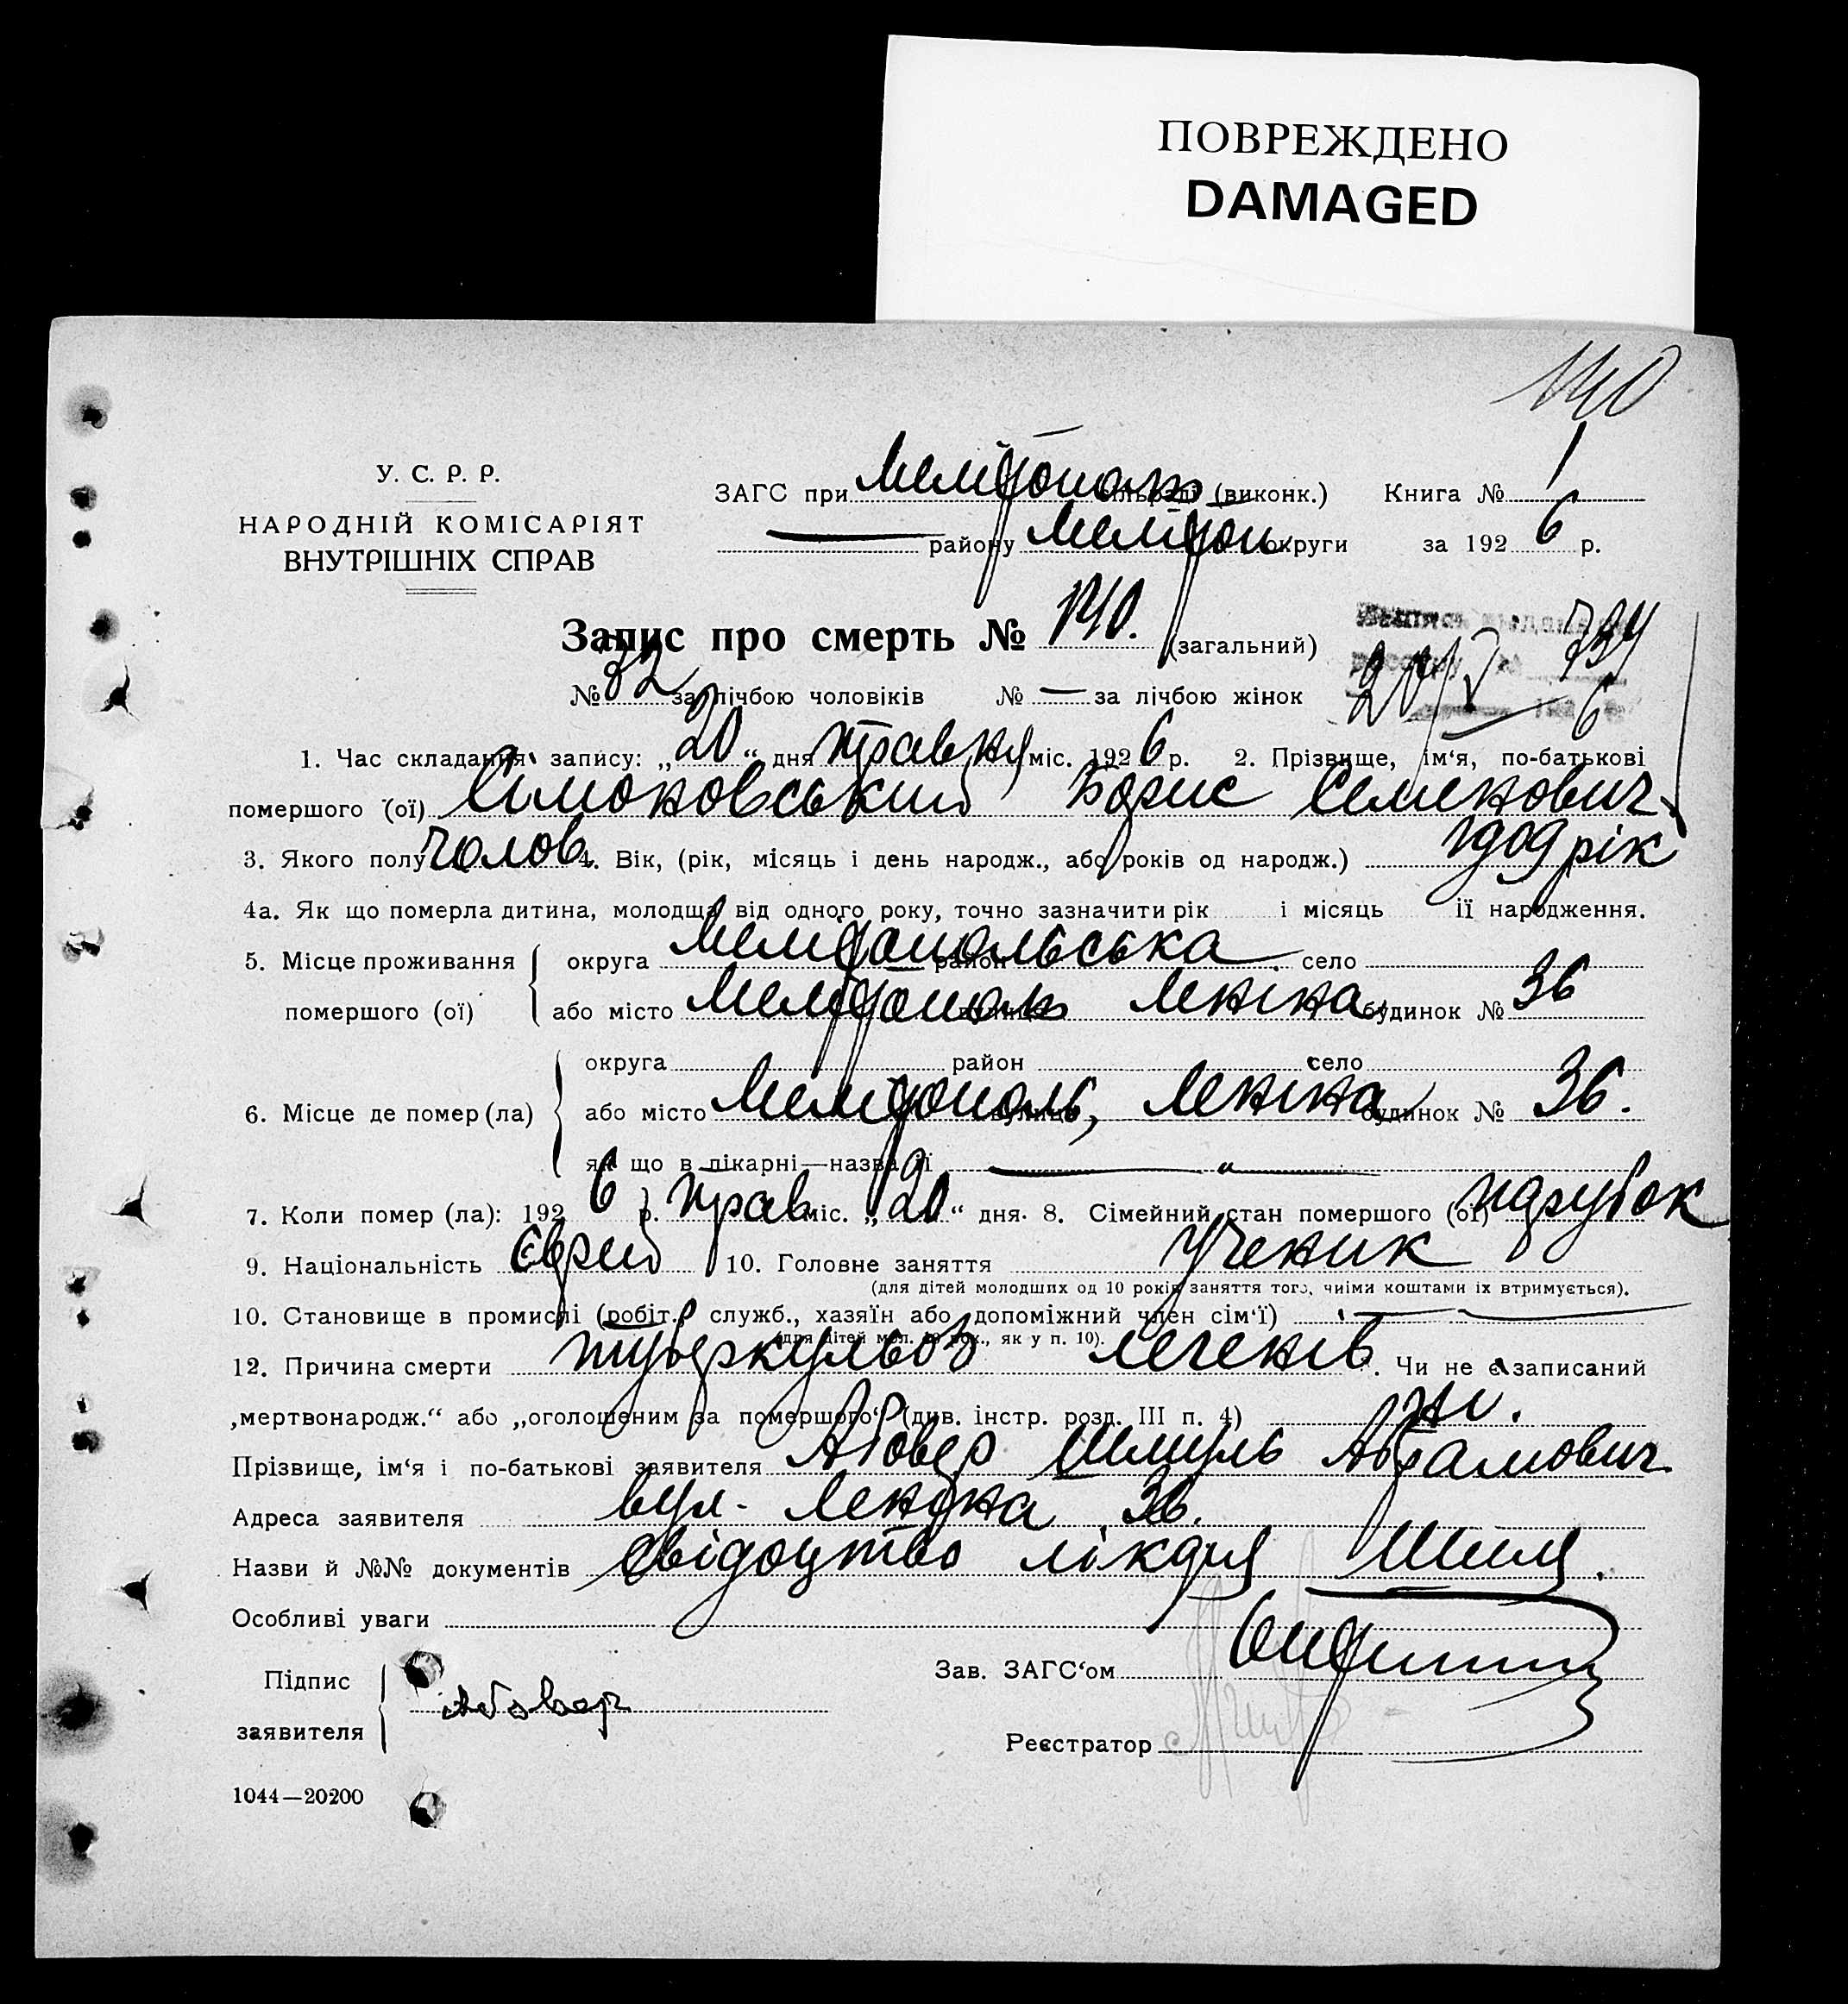 ПОВРЕЖДЕНО
DAMAGED
140
У. С. Р. Р.
НАРОДНІЙ КОМІСАРІЯТ
ВНУТРІШНІХ СПРАВ
ЗАГС при Мелітополь сільраді (виконк.) Книга № 1
— району Мелітоп. округи за 1926 р.
Запис про смерть № 140. (загальний)
№ 82 за лічбою чоловіків № — за лічбою жінок
734
20/V 6
1. Час складання запису: „20“ дня травня міс. 1926 р. 2. Прізвище, ім‘я, по-батькові
помершого (ої) Сімоновський Борис Семенович
3. Якого полу чолов. 4. Вік, (рік, місяць і день народж., або років од народж.) 1909 рік
4а. Як що померла дитина, молодща від одного року, точно зазначити рік і місяць її народження.
5. Місце проживання помершого (ої) округа Мелітопольська район село
або місто Мелітополь вулиця Леніна будинок № 36
6. Місце де помер (ла) округа район село
або місто Мелітополь, вулиця Леніна будинок № 36.
як що в лікарні—назва її — „ —
7. Коли помер (ла): 1926 р. трав. міс. „20“ дня. 8. Сімейний стан помершого (ої) парубок
9. Національність Єврей 10. Головне заняття Ученик
(для дітей молодших од 10 років заняття того, чиїми коштами їх втримується).
10. Становище в промислі (робіт., служб., хазяїн або допоміжний член сім‘ї) —
(для дітей мол. 10 рок., як у п. 10).
12. Причина смерти туберкульоз легенів. Чи не є записаний
„мертвонародж.“ або „оголошеним за помершого“ (див. інстр. розд. III п. 4) ні.
Прізвище, ім‘я і по-батькові заявителя Абовер Шмуль Абрамович
Адреса заявителя вул. Леніна 36.
Назви й №№ документів свідоцтво лікаря
Особливі уваги
Підпис заявителя Абовер
Зав. ЗАГС‘ом
Реєстратор
1044—20200